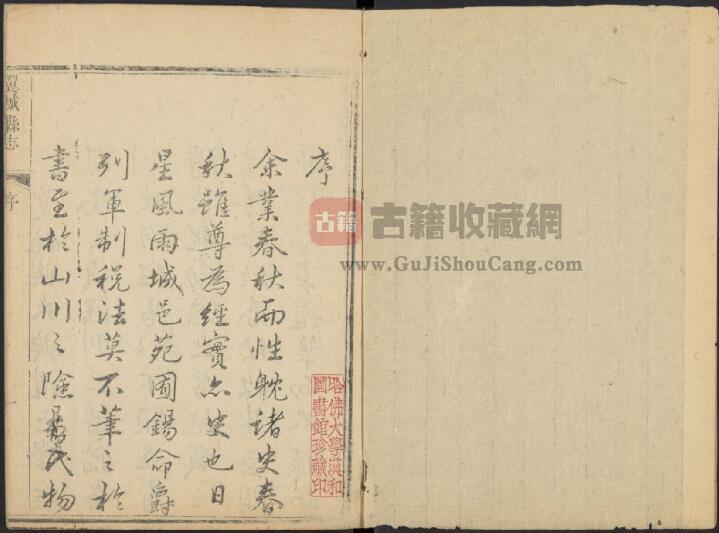 序
余業春秋而性躭諸史春
秋雖尊為經實亦史也日
星風雨城邑苑囿錫命爵
列軍制税法莫不筆之於
書至於山川之險易民物
翼城縣志
序
哈佛大學漢和
圖書館珍藏印
古籍
古籍收藏網
www.GuJiShouCang.com